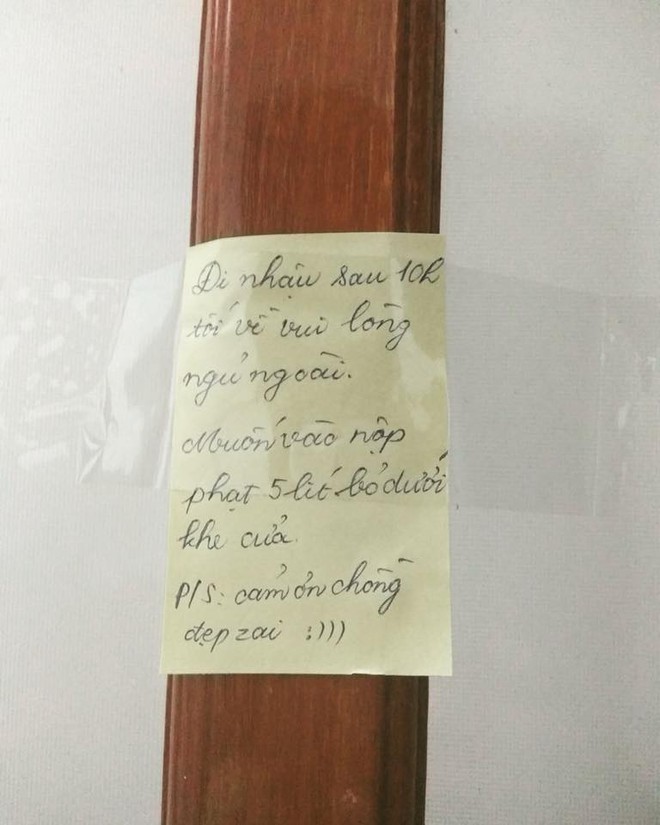 Đi nhậu sau 10h
tối về vui lòng
ngủ ngoài.
Muốn vào nộp
phạt 5 lít bỏ dưới
khe cửa.
P/S: cảm ơn chồng
đẹp zai :))))